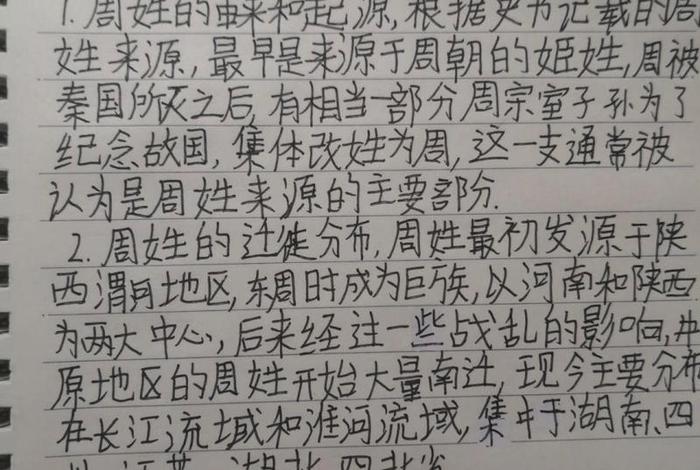 1.周姓的由来和起源,根据史书记载的周
姓来源,最早是来源于周朝的姬姓,周被
秦国所灭之后,有相当一部分周宗室子孙为了
纪念故国,集体改姓为周,这一支通常被
认为是周姓来源的主要部分.
2.周姓的迁徙分布,周姓最初发源于陕
西渭河地区,东周时成为巨族,以河南和陕西
为两大中心,后来经过一些战乱的影响,中
原地区的周姓开始大量南迁,现今主要分布
在长江流域和淮河流域,集中于湖南、四
江苏、湖北